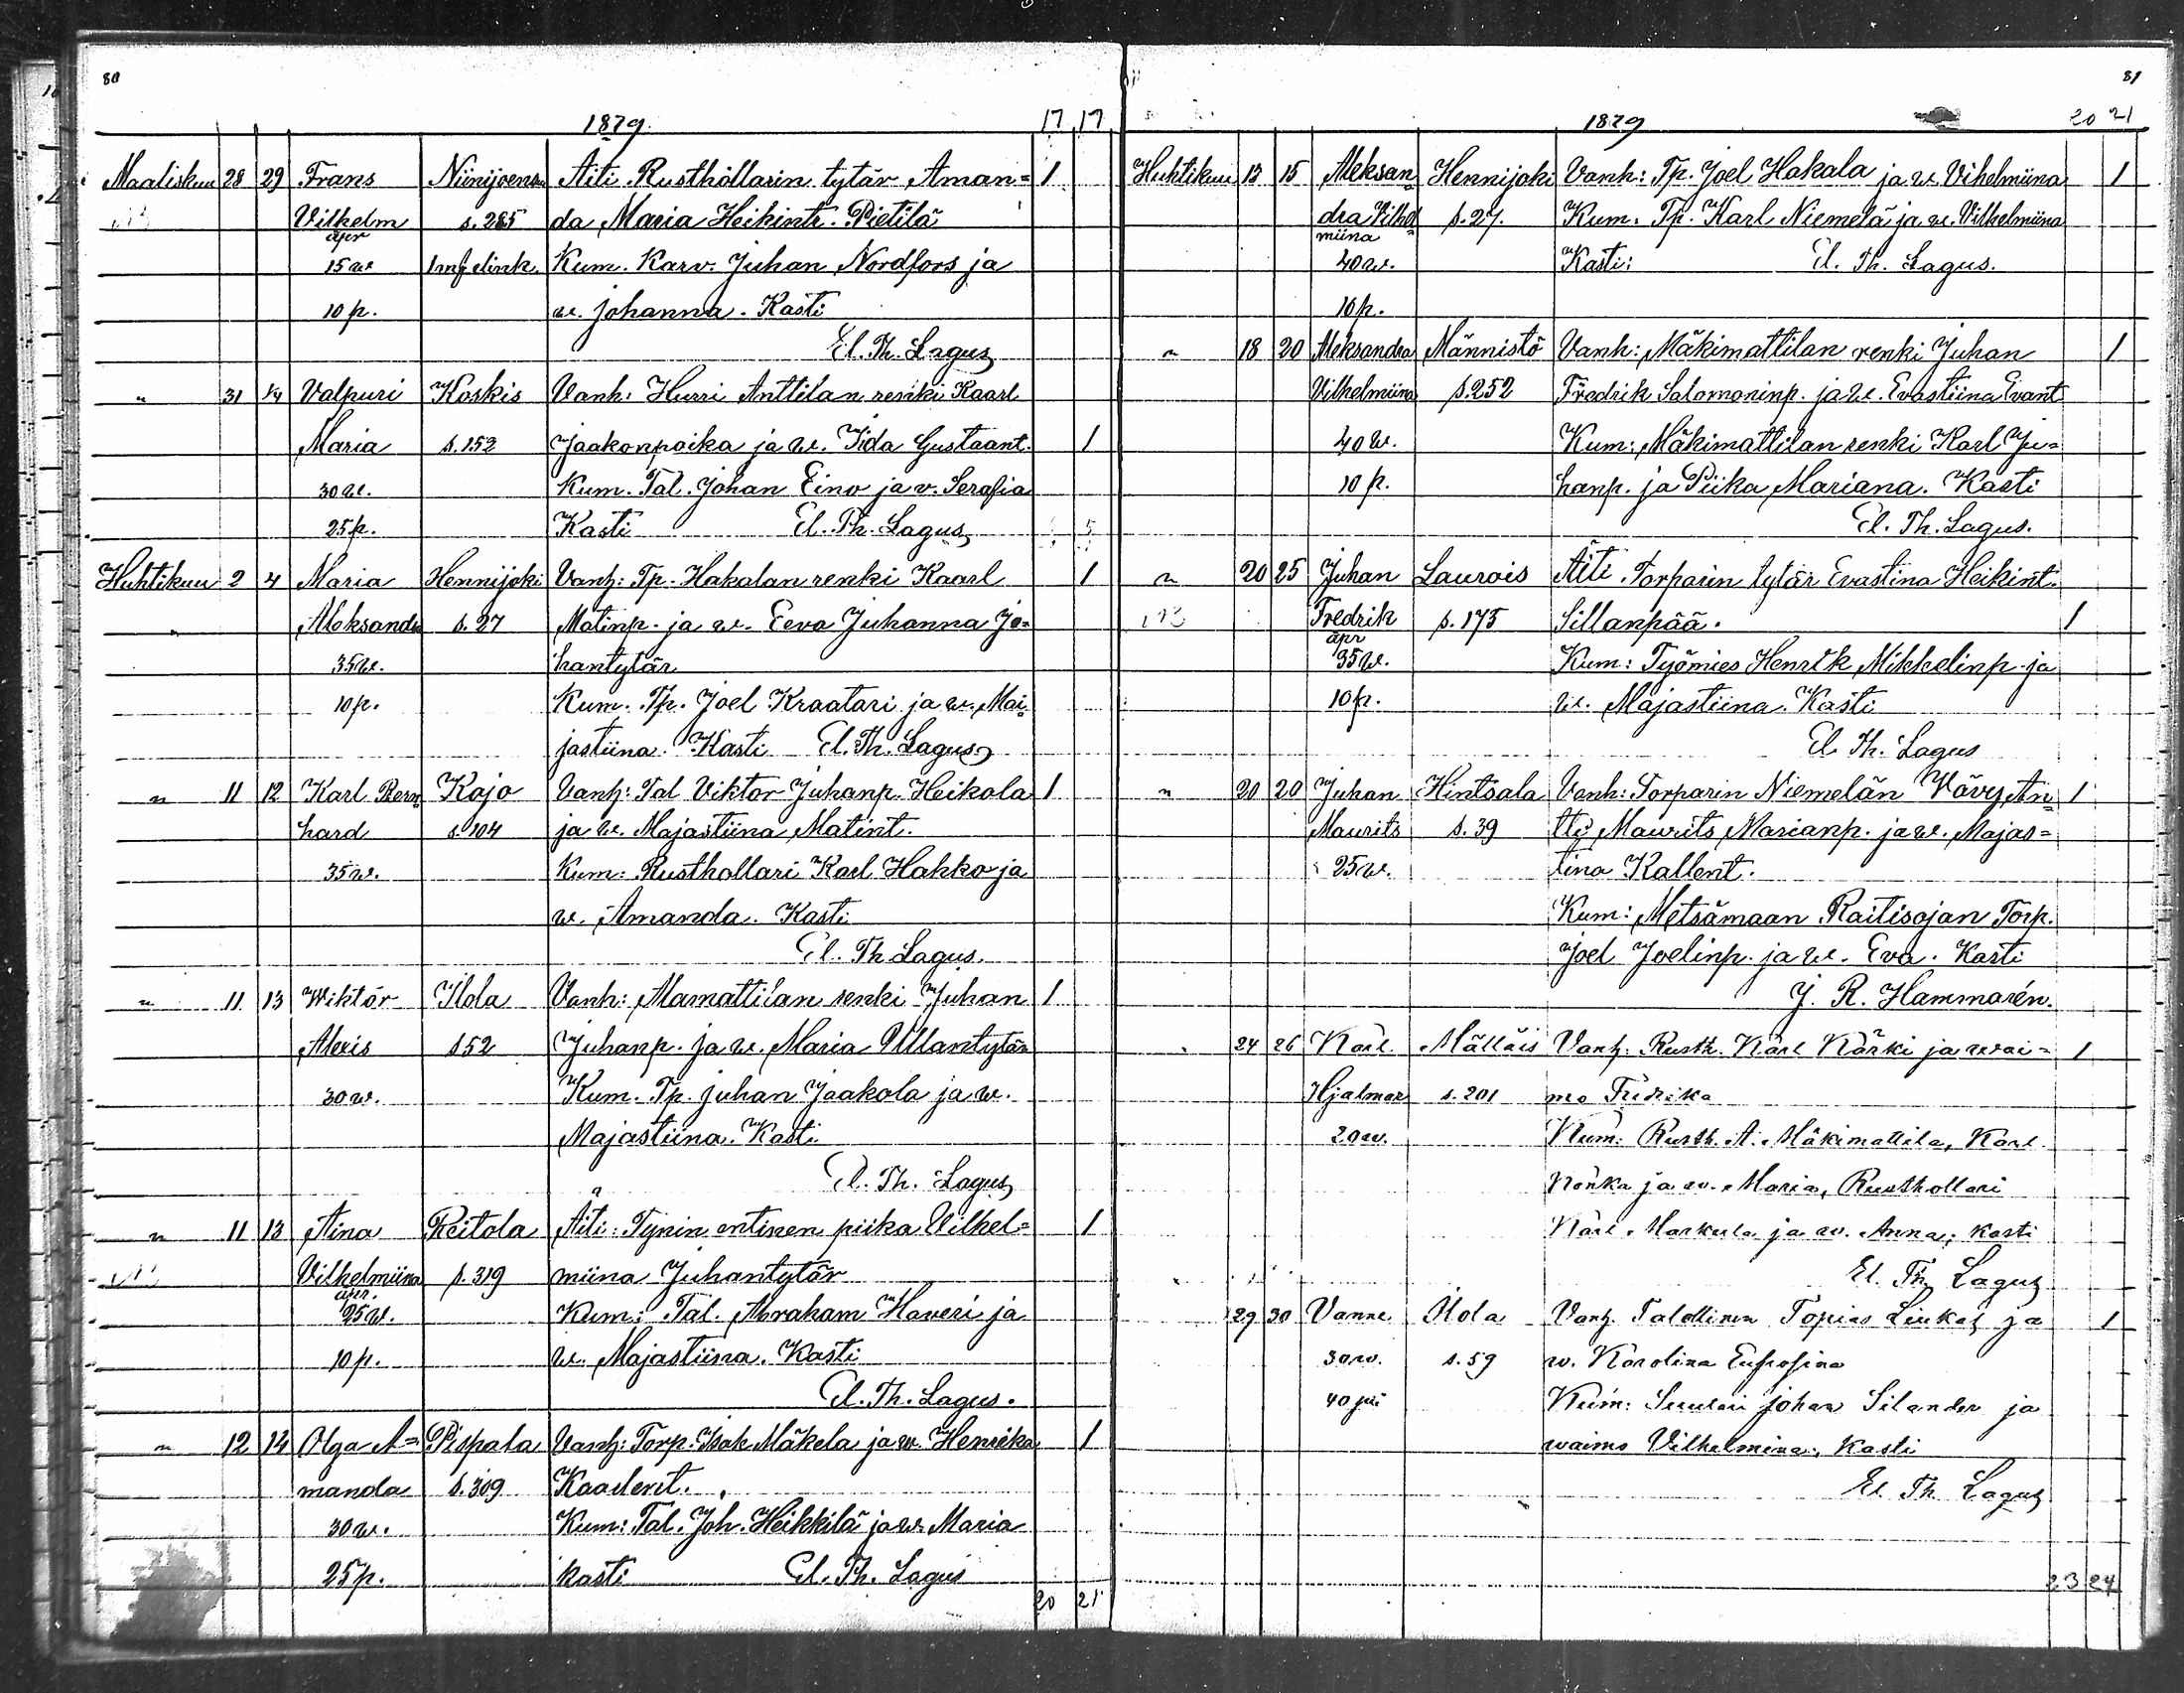 80
1879.
17 17
Maaliskuu 28 29 Frans Niinijoensu Äiti. Rusthollarin tytär Aman= 1
Vilhelm s. 285 da Maria Heikintr. Pietilä
äpr
15 w. Kum. Karv. Juhan Nordfors ja
10 p. w. Johanna. Kasti
El. Th. Lagus
" 31 1/4 Valpuri Koskis Vanh: Hurri Anttilan renki Kaarl
Maria s. 152 Jaakonpoika ja w. Iida Gustaant. 1
30 w. Kum. Tal. Johan Eino ja v. Serafia
25 p. Kasti El. Th. Lagus
Huhtikuu 2 4 Maria Hennijoki Vanh: Tp. Hakalan renki Kaarl 1
" Aleksandra s. 27 Matinp. ja w. Eeva Juhanna Jo=
35 w. hantytär
10 p. Kum. Tp. Joel Kraatari ja w. Mai=
jastiina. Kasti El. Th. Lagus
" 11 12 Karl Bern= Kojo Vanh: Tal Viktor Juhanp. Heikola 1
hard s. 104 ja w. Majastiina Matint.
35 w. Kum: Rusthollari Karl Hakko ja
w. Amanda. Kasti
El. Th Lagus.
" 11 13 Wiktor Ilola Vanh: Mamattilan renki Juhan 1
Alexis s 52 Juhanp. ja w. Maria Ullantytär
30 w. Kum. Tp. Juhan Jaakola ja w.
Majastiina. Kasti
El. Th. Lagus
" 11 13 Aina Reitola Äiti: Tynin entinen piika Vilhel= 1
Vilhelmiina s. 319 miina Juhantytär
äpr.
25 w. Kum: Tal. Abraham Haveri ja
10 p. w. Majastiina. Kasti
El. Th. Lagus.
" 12 14 Olga A= Pispala Vanh: Torp. Isak Mäkela ja w. Henrika 1
manda s. 309 Kaarlent.
30 w. Kum: Tal. Joh. Heikkilä ja w. Maria
25 p. kasti El. Th. Lagus
20 21
81
1879
20 21
Huhtikuu 13 15 Aleksan= Hennijoki Vanh: Tp. Joel Hakala ja w. Vihelmiina 1
dra Vilhel= s. 27. Kum. Tp. Karl Niemelä ja w. Vilhelmiina
miina
40 w. Kasti: El. Th. Lagus.
10 p.
" 18 20 Aleksandra Männistö Vanh: Mäkimattilan renki Juhan 1
Vilhelmiina s. 252 Fredrik Salomoninp. ja w. Evastiina Evant
40 w. Kum: Mäkimattilan renki Karl Ju=
10 p. hanp. ja Piika Mariana. Kasti
El. Th. Lagus.
" 20 25 Juhan Laurois Äiti. Torparin tytär Evastina Heikint.
Fredrik s. 175 Sillanpää. 1
äpr
35 w. Kum: Työmies Henrik Mikkelinp. ja
10 p. w. Majastiina. Kasti
El Th. Lagus
" 20 20 Juhan Hintsala Vanh: Torparin Niemelän Vävy An= 1
Maurits s. 39 tti Maurits Marianp. ja w. Majas=
25 w. tina Kallent.
Kum: Metsämaan Raitisojan Torp.
Joel Joelinp. ja w. Eva. Kasti
J. R. Hammarén.
24 26 Karl Mälläis Vanh: Rusth. Karl Kärki ja wai= 1
Hjalmar s. 201 mo Fredrika
20 w. Kum: Rusth. A. Mäkimattila, Karl
ja w. Maria, Rusthollari
Karl Markula ja w. Anna; kasti
El. Th Lagus
29 30 Vanne Ilola Vanh. Talollinen Topias Liukas ja 1
30 w. s. 59 w. Karolina Eufrosina
40 pä Kum: Suutari Johan Silander ja
waimo Vilhelmina; kasti
El. Th. Lagus
23 24